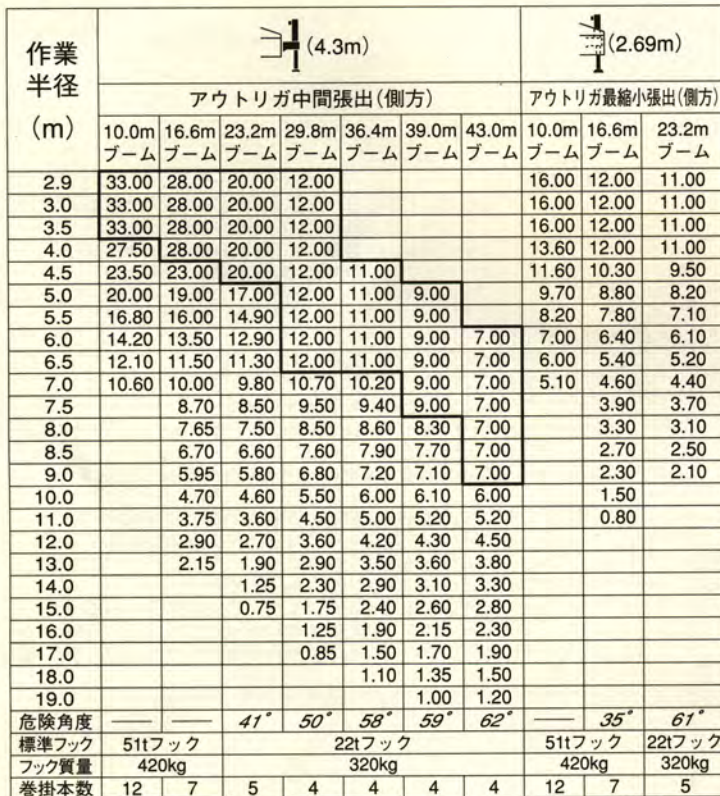 作業半径(m) (4.3m) (2.69m)
アウトリガ中間張出(側方) アウトリガ最縮小張出(側方)
10.0mブーム 16.6mブーム 23.2mブーム 29.8mブーム 36.4mブーム 39.0mブーム 43.0mブーム 10.0mブーム 16.6mブーム 23.2mブーム
2.9 33.00 28.00 20.00 12.00 16.00 12.00 11.00
3.0 33.00 28.00 20.00 12.00 16.00 12.00 11.00
3.5 33.00 28.00 20.00 12.00 16.00 12.00 11.00
4.0 27.50 28.00 20.00 12.00 13.60 12.00 11.00
4.5 23.50 23.00 20.00 12.00 11.00 11.60 10.30 9.50
5.0 20.00 19.00 17.00 12.00 11.00 9.00 9.70 8.80 8.20
5.5 16.80 16.00 14.90 12.00 11.00 9.00 8.20 7.80 7.10
6.0 14.20 13.50 12.90 12.00 11.00 9.00 7.00 7.00 6.40 6.10
6.5 12.10 11.50 11.30 12.00 11.00 9.00 7.00 6.00 5.40 5.20
7.0 10.60 10.00 9.80 10.70 10.20 9.00 7.00 5.10 4.60 4.40
7.5 8.70 8.50 9.50 9.40 9.00 7.00 3.90 3.70
8.0 7.65 7.50 8.50 8.60 8.30 7.00 3.30 3.10
8.5 6.70 6.60 7.60 7.90 7.70 7.00 2.70 2.50
9.0 5.95 5.80 6.80 7.20 7.10 7.00 2.30 2.10
10.0 4.70 4.60 5.50 6.00 6.10 6.00 1.50
11.0 3.75 3.60 4.50 5.00 5.20 5.20 0.80
12.0 2.90 2.70 3.60 4.20 4.30 4.50
13.0 2.15 1.90 2.90 3.50 3.60 3.80
14.0 1.25 2.30 2.90 3.10 3.30
15.0 0.75 1.75 2.40 2.60 2.80
16.0 1.25 1.90 2.15 2.30
17.0 0.85 1.50 1.70 1.90
18.0 1.10 1.35 1.50
19.0 1.00 1.20
危険角度 — — 41° 50° 58° 59° 62° — 35° 61°
標準フック 51tフック 22tフック 51tフック 22tフック
フック質量 420kg 320kg 420kg 320kg
巻掛本数 12 7 5 4 4 4 4 12 7 5